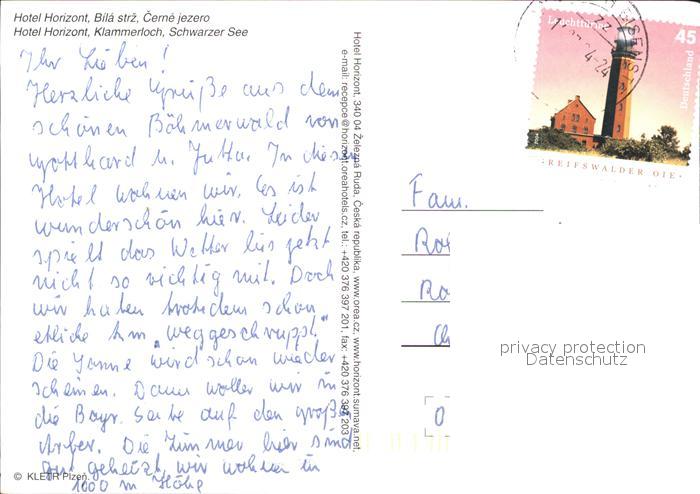 Hotel Horizont, Bílá strž, Černé jezero
Hotel Horizont, Klammerloch, Schwarzer See
Ihr Lieben!
Herzliche Grüße aus dem
schönen Böhmerwald von
Gotthard u. Jutta. In diesem
Hotel wohnen wir. Es ist
wunderschön hier. Leider
spielt das Wetter bis jetzt
nicht so richtig mit. Doch
wir haben trotzdem schon
etliche km "weggeschruppt."
Die Sonne wird schon wieder
scheinen. Dann wollen wir in
die Bayr. Seite auf den großen
Arber. Die Zimmer hier sind
geheizt, wir wohnen in
1000 m Höhe
© KLETR Plzeň.
Hotel Horizont, 340 04 Železná Ruda, Česká republika, www.orea.cz, www.horizont.sumava.net,
e-mail: recepce@horizont.oreahotels.cz, tel.: +420 376 397 201, fax: +420 376 397 203
Leuchttürme
45
Deutschland
2004
REIFSWALDER OIE
Fam.
privacy protection
Datenschutz
0